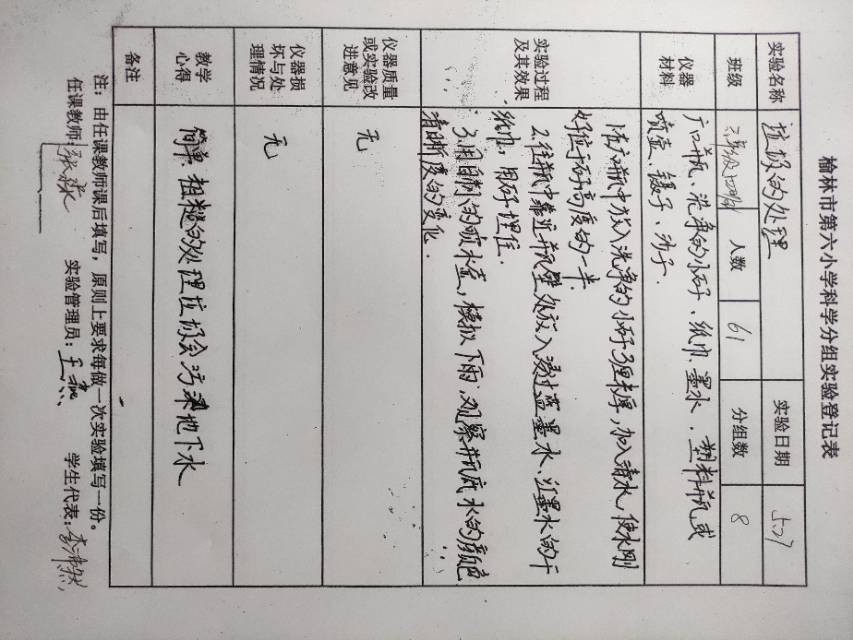 榆林市第六小学科学分组实验登记表
实验名称 垃圾的处理 实验日期 5.27
班级 六年级四班 人数 61 分组数 8
仪器材料 广口瓶、洗净的小石子、纸巾、墨水、塑料瓶或
喷壶、镊子、勺子.
实验过程及其效果 1.在瓶中放入洗净的小石子3厘米厚,加入清水,使水刚
好位于石子高度的一半.
2.往瓶中靠近瓶壁处放入浸过蓝墨水、红墨水的干
纸巾,用石子埋住.
3.用自制的喷水壶,模拟下雨,观察瓶底水的颜色
清晰度的变化.
仪器质量或实验改进意见 无
仪器损坏与处理情况 无
教学心得 简单、粗糙的处理垃圾会污染地下水
备注
注:由任课教师课后填写,原则上要求每做一次实验填写一份。
任课教师: 实验管理员: 学生代表: